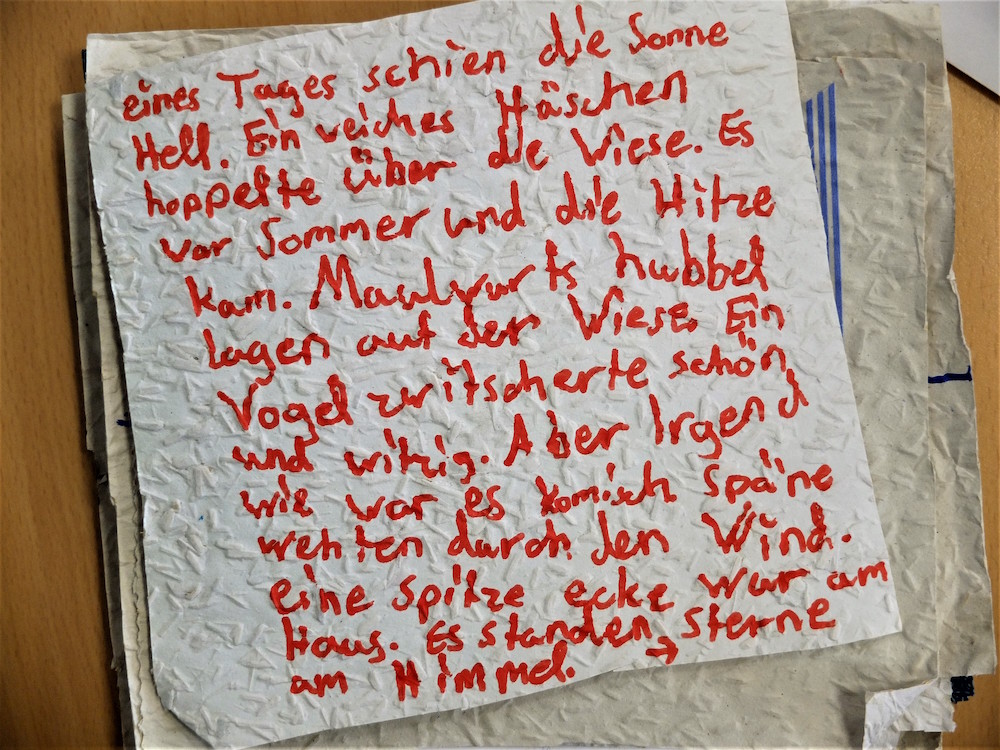 eines Tages schien die Sonne
Hell. Ein weiches Häschen
hoppelte über die Wiese. Es
war Sommer und die Hitze
kam. Maulwurfs hubbel
lagen auf der Wiese. Ein
Vogel zwitscherte schön
und witzig. Aber Irgend
wie war es komisch späne
wehten durch den Wind.
eine spitze ecke war am
Haus. Es standen sterne
am Himmel. →